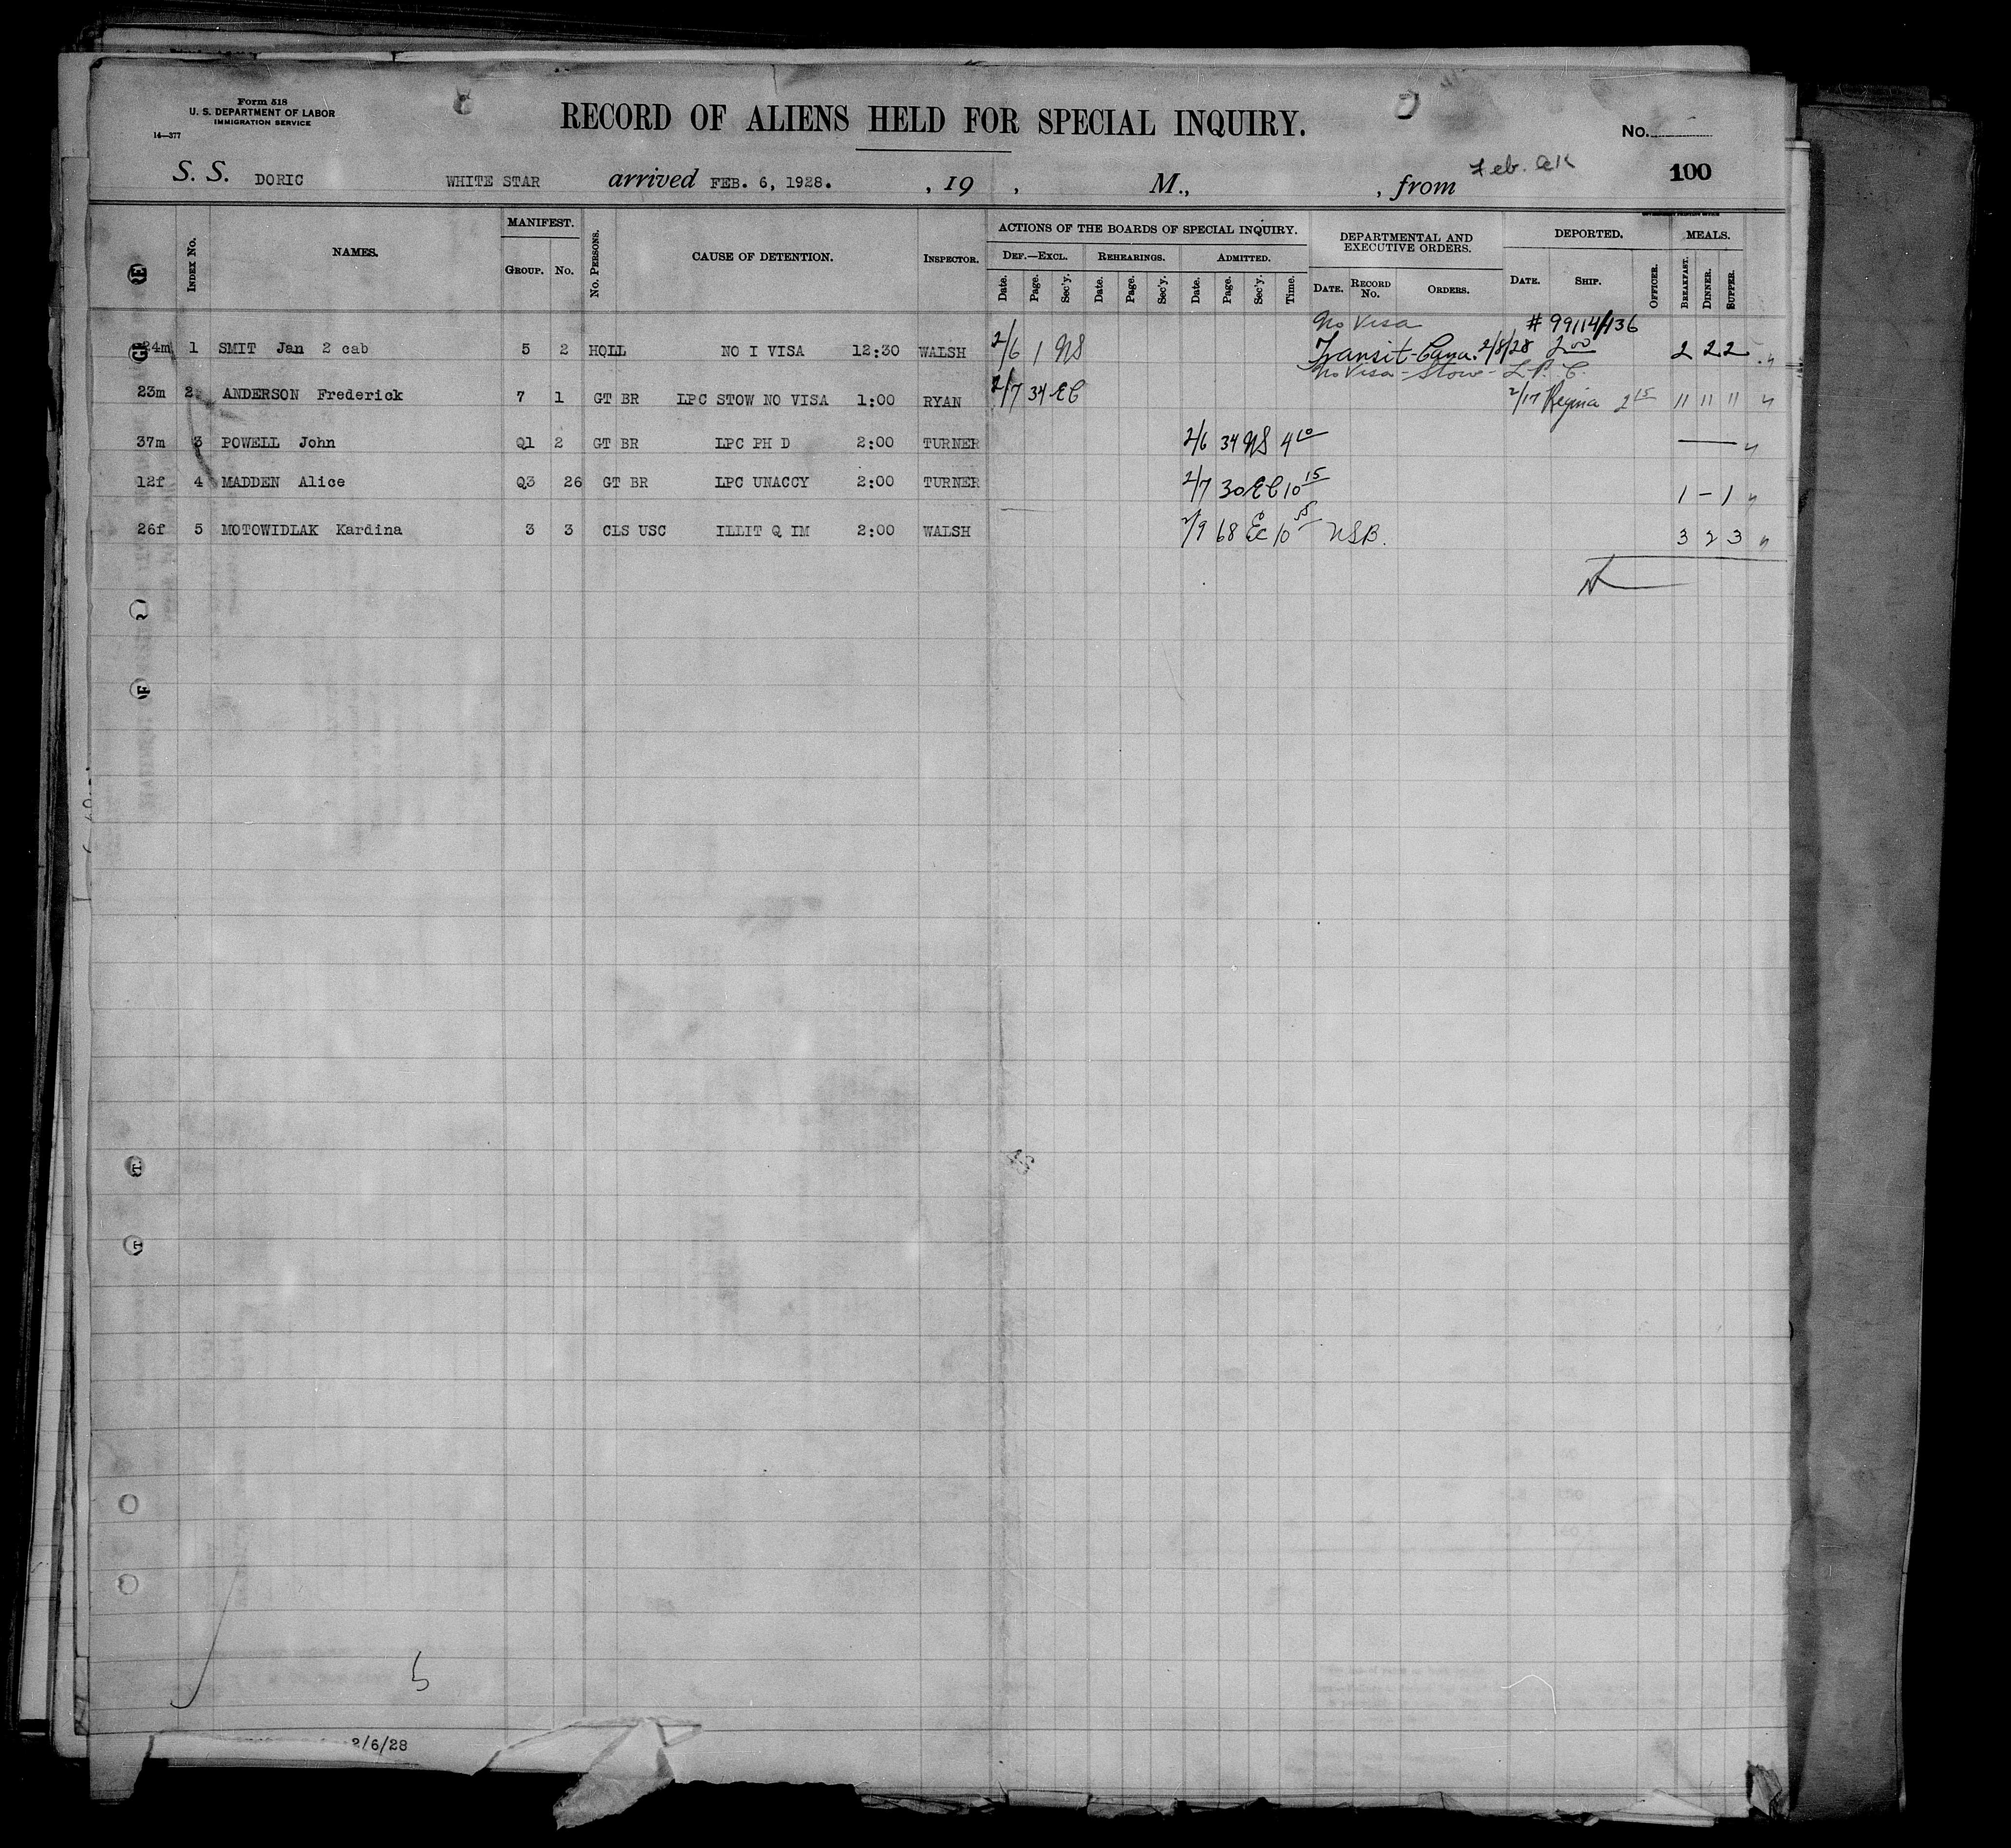 Form 518
U. S. DEPARTMENT OF LABOR
IMMIGRATION SERVICE
14—377
RECORD OF ALIENS HELD FOR SPECIAL INQUIRY.
No.
100
S. S. DORIC WHITE STAR arrived FEB. 6, 1928. , 19 , M., , from Feb.
INDEX No. NAMES. MANIFEST. GROUP. No. No. PERSONS. CAUSE OF DETENTION. INSPECTOR. ACTIONS OF THE BOARDS OF SPECIAL INQUIRY. DEPARTMENTAL AND EXECUTIVE ORDERS. DEPORTED. MEALS.
DEF.—EXCL. REHEARINGS. ADMITTED.
Date. Page. Sec'y. Date. Page. Sec'y. Date. Page. Sec'y. Time. DATE. RECORD No. ORDERS. DATE. SHIP. OFFICER. BREAKFAST. DINNER. SUPPER.
No Visa # 99114/136
24m 1 SMIT Jan 2 cab 5 2 HOLL NO I VISA 12:30 WALSH 2/6 1 NS Transit-Cana. 2/8/28 2 00 2 2 2
No Visa - Stow - L. P. C.
23m 2 ANDERSON Frederick 7 1 GT BR LPC STOW NO VISA 1:00 RYAN 2/7 34 EC 2/17 Regina 2 15 11 11 11
37m 3 POWELL John Q1 2 GT BR LPC PH D 2:00 TURNER 2/6 34 NS 4 10 —
12f 4 MADDEN Alice Q3 26 GT BR LPC UNACCY 2:00 TURNER 2/7 30 EC 10 15 1 – 1
26f 5 MOTOWIDLAK Kardina 3 3 CLS USC ILLIT Q IM 2:00 WALSH 2/9 68 EC 10 NSB. 3 2 3
5
2/6/28